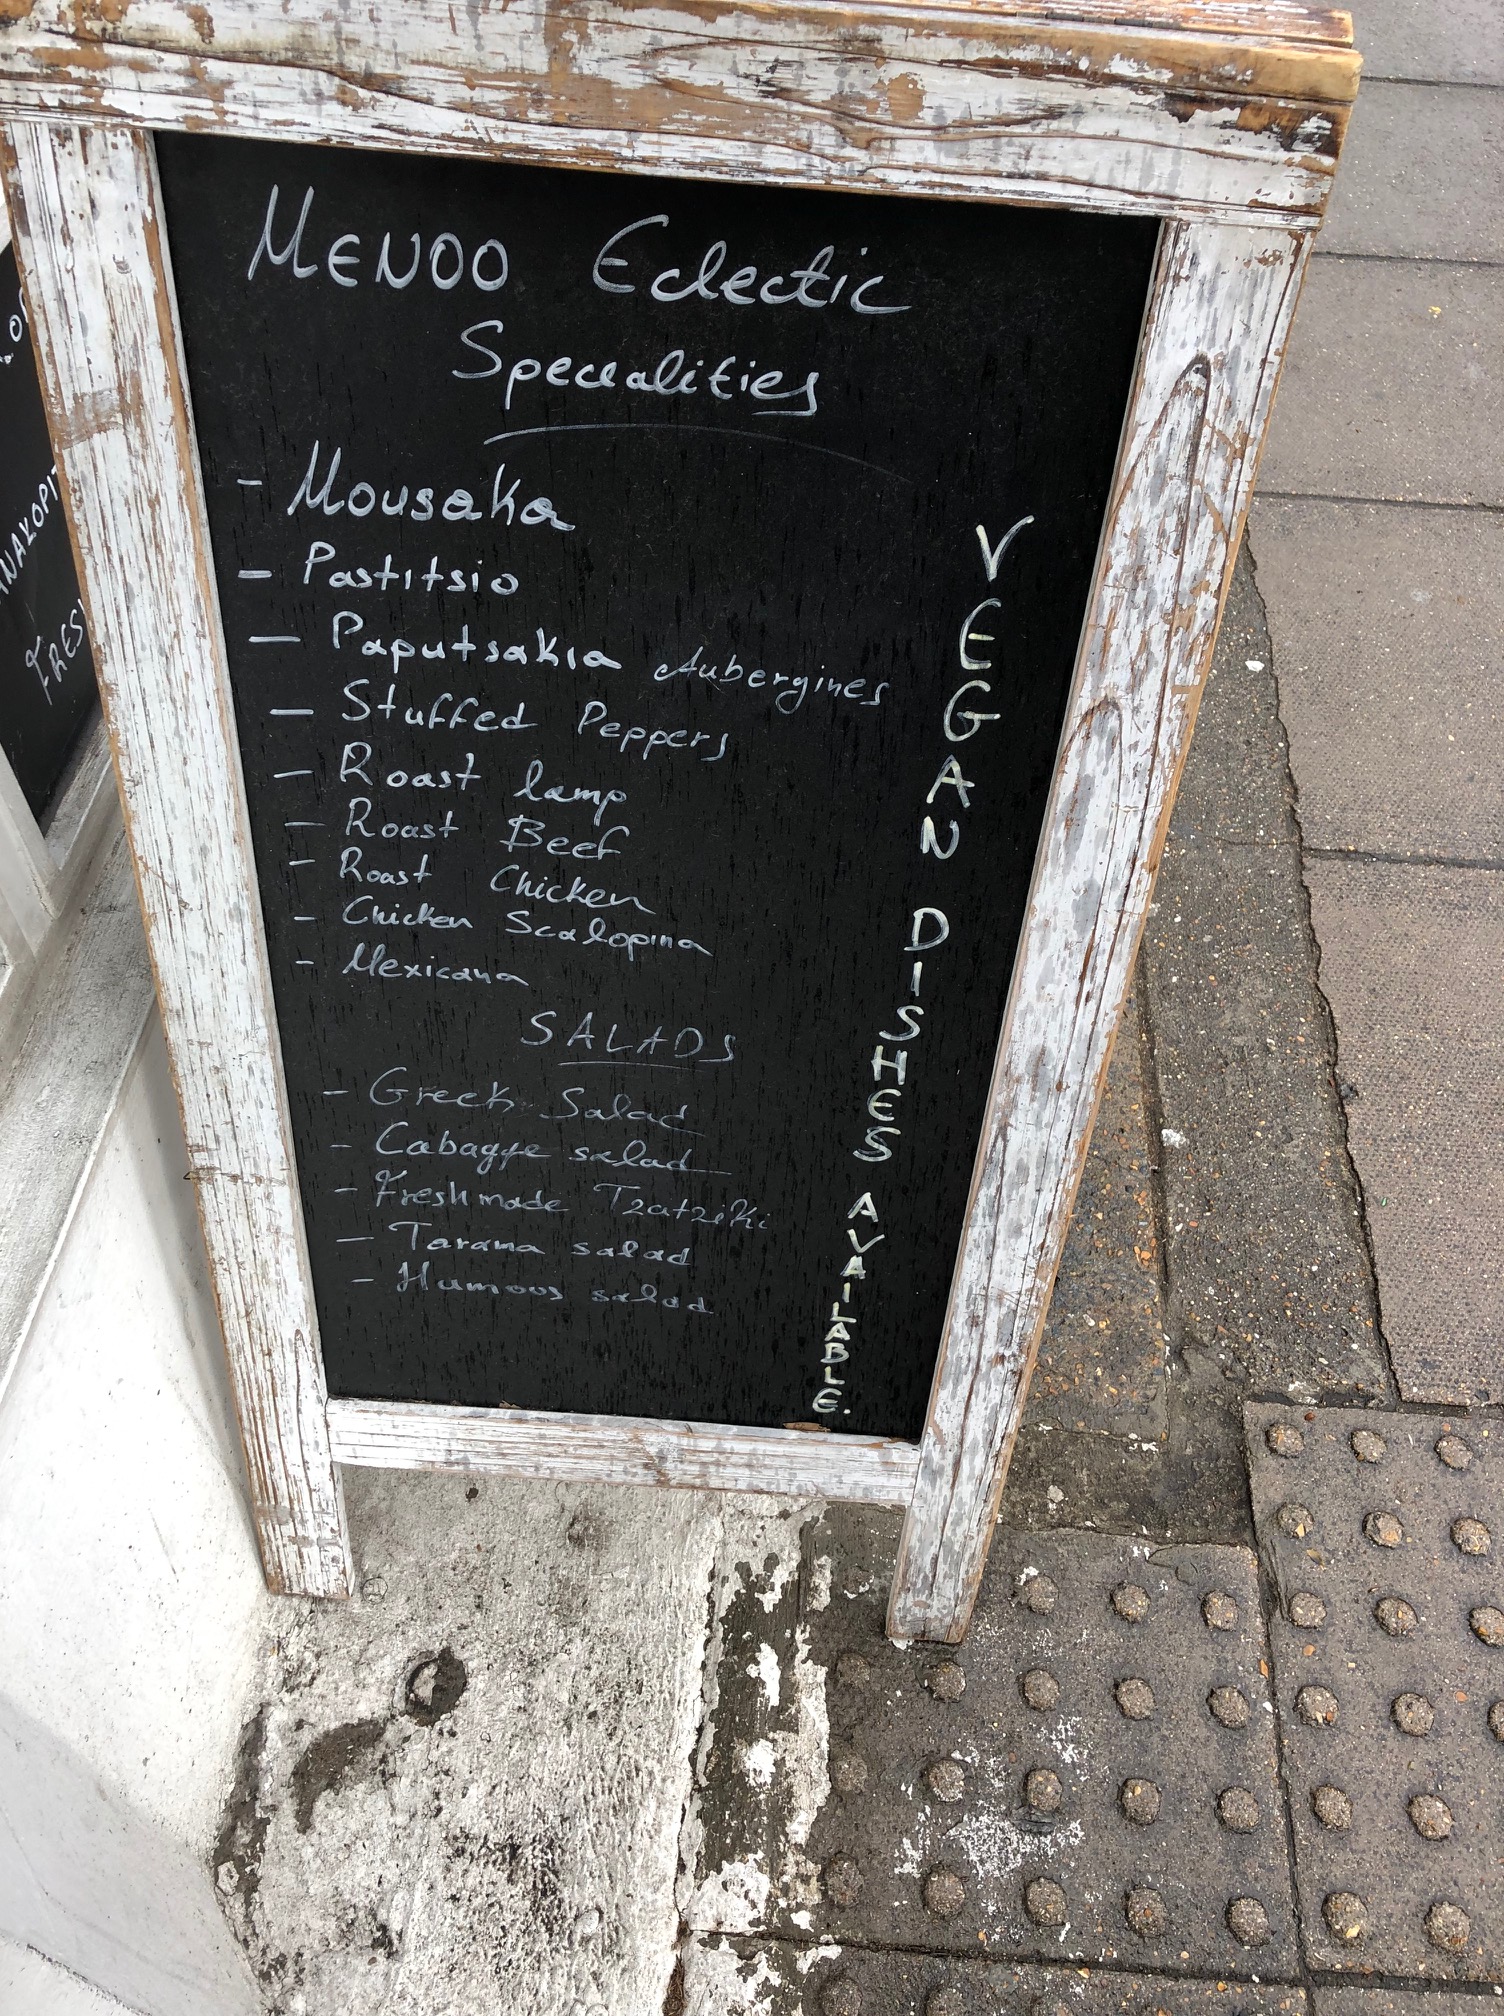 MENOO Eclectic
Specialities
- Mousaka
- Pastitsio
- Paputsakia Aubergines
- Stuffed Peppers
- Roast lamp
- Roast Beef
- Roast Chicken
- Chicken Scalopina
- Mexicana
SALADS
- Greek Salad
- Cabagge salad
- Freshmade Tzatziki
- Tarama salad
- Humous salad
VEGAN DISHES AVAILABLE.